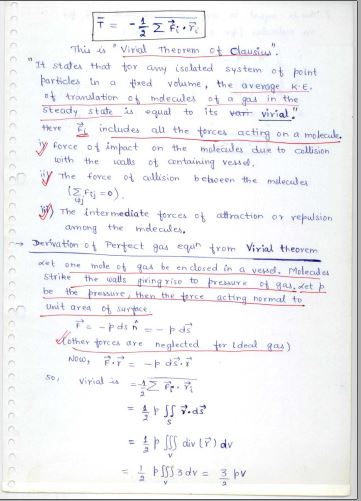 T̄ = - 1/2 Σ F⃗i · r⃗i
This is "Virial Theorem of Clausius".
"It states that for any isolated system of point
particles in a fixed volume, the average K.E.
of translation of molecules of a gas in the
steady state is equal to its virial."
Here F⃗i includes all the forces acting on a molecule.
i) Force of impact on the molecules due to collision
with the walls of containing vessel.
ii) The force of collision between the molecules
(Σ Fij = 0).
iii) The intermediate forces of attraction or repulsion
among the molecules.
→ Derivation of Perfect gas equⁿ from Virial theorem
Let one mole of gas be enclosed in a vessel. Molecules
strike the walls giving rise to pressure of gas. Let p
be the pressure, then the force acting normal to
unit area of surface
F⃗ = - p ds n̂ = - p ds⃗
(other forces are neglected for ideal gas)
Now, F⃗ · r⃗ = - p ds⃗ · r⃗
so, Virial is = - 1/2 Σ F⃗i · r⃗i
= 1/2 p ∬S r⃗ · ds⃗
= 1/2 p ∭V div (r⃗) dv
= 1/2 p ∭V 3 dv = 3/2 pV